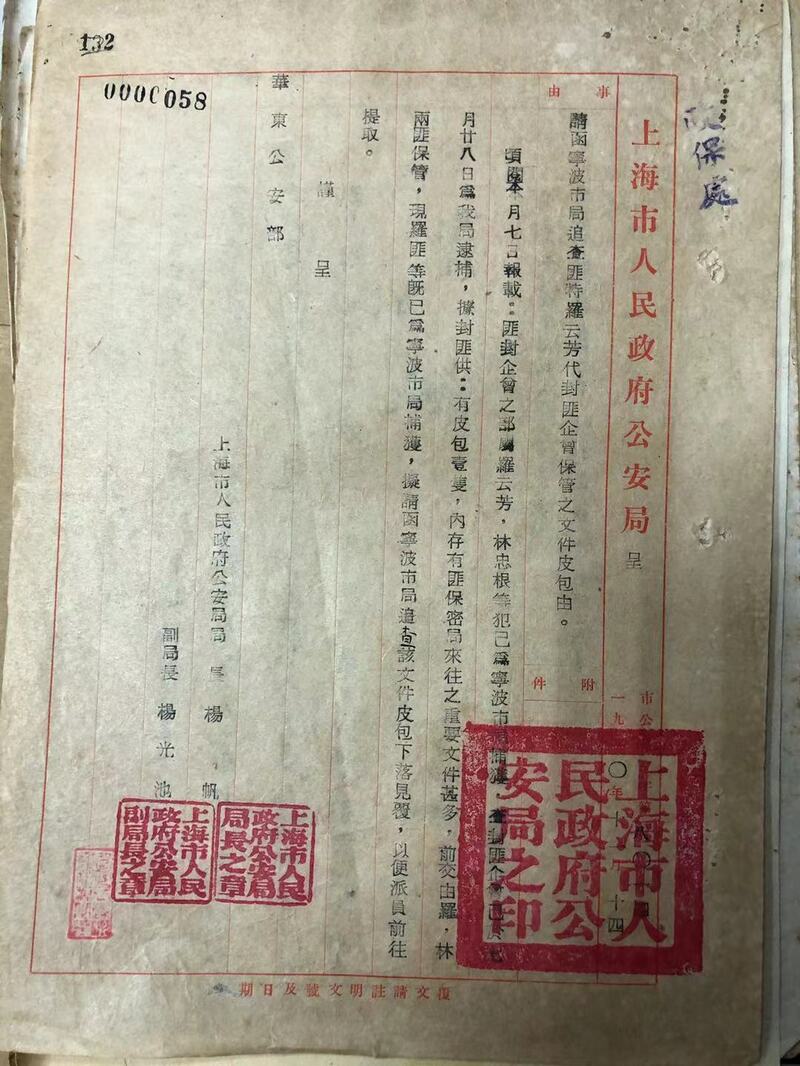 132
0000058
政保處
上海市人民政府公安局 呈
事由
請函寧波市局追查匪特羅云芳代封匪企曾保管之文件皮包由。
附件
市公
一九
〇年十
十四
頃閱本月七日報載：匪封企曾之部屬羅云芳，林忠根等犯已爲寧波市局捕獲，查封匪企曾已於七
月廿八日爲我局逮捕，據封匪供：有皮包壹隻，內存有匪保密局來往之重要文件甚多，前交由羅，林
兩匪保管，現羅匪等旣已爲寧波市局捕獲，擬請函寧波市局追查該文件皮包下落見覆，以便派員前往
提取。
謹呈
華東公安部
上海市人民政府公安局局長 楊帆
副局長 楊光池
上海市人民政府公安局之印
上海市人民政府公安局局長之章
上海市人民政府公安局副局長之章
復文請註明文號及日期